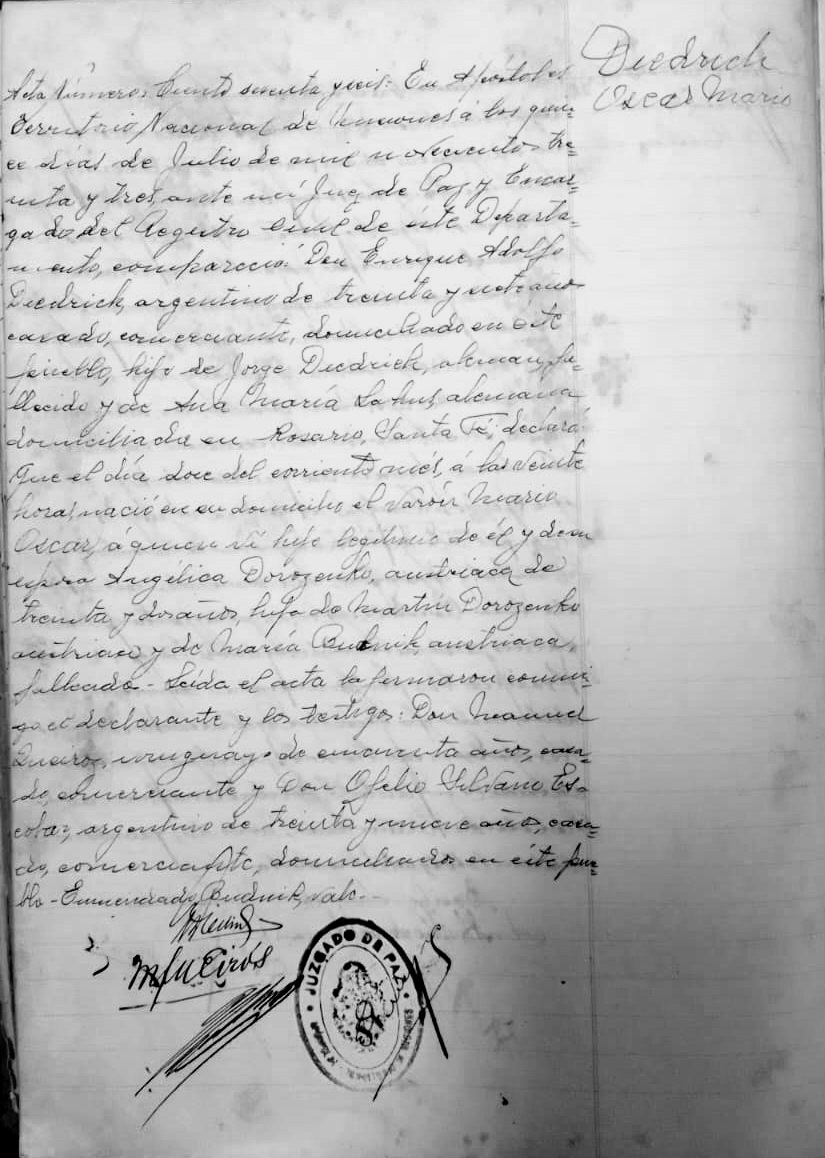 Diedrich
Oscar Mario
Acta Número: Ciento sesenta y seis: En Apóstoles
Territorio Nacional de Misiones á los quin=
ce días de Julio de mil novecientos tre=
inta y tres, ante mí Juez de Paz y Encar=
gado del Registro Civil de este Departa=
mento, compareció: Don Enrique Adolfo
Diedrich, argentino de treinta y siete años
casado, comerciante, domiciliado en éste
pueblo, hijo de Jorge Diedrich, aleman, fa=
llecido y de Ana María alemana
domiciliada en Rosario, Santa Fé; declaró:
Que el día doce del corriente més, á las veinte
horas, nació en su domicilio el varón Mario
Oscar, á quien ví hijo legítimo de él y de su
esposa Angélica Dorozenko, austriaca de
treinta y dos años, hija de Martín Dorozenko
austriaco y de María Budnik, austriaca,
fallecida - Leída el acta la firmaron conmi=
go el declarante y los testigos: Don Manuel
Queiros, uruguayo de cincuenta años, casa=
do, comerciante y Don Ofelio Silvano Es=
cobar, argentino de treinta y nueve años, casa=
do, comerciante, domiciliados en éste pue=
blo - Enmendado, Budnik, vale. -
MQueirós
JUZGADO DE PAZ